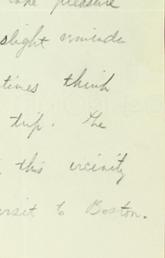 the pleasure
slight reminder
times think
trip. The
this vicinity
visit to Boston.